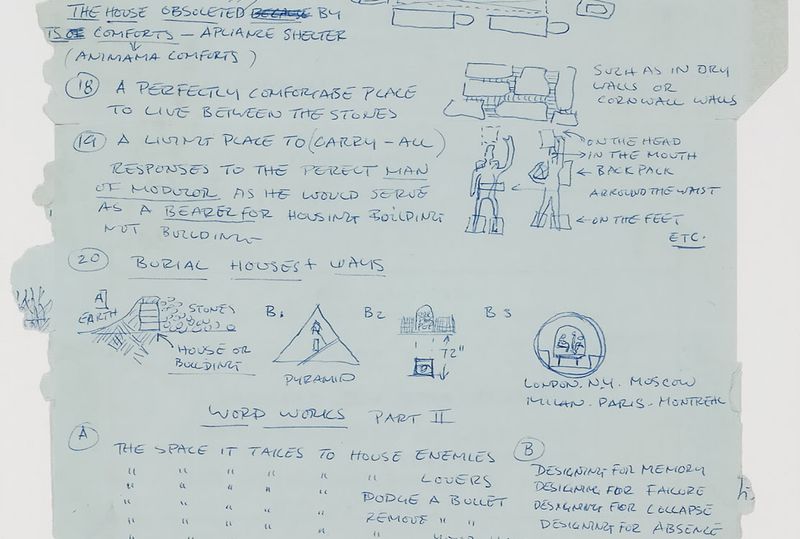 THE HOUSE OBSOLETED BECAUSE BY
ITS COMFORTS — APLIANCE SHELTER
(ANIMAMA COMFORTS)
18 A PERFECTLY COMFORTABLE PLACE
TO LIVE BETWEEN THE STONES
SUCH AS IN DRY
WALLS OR
CORNWALL WALLS
19 A LIVING PLACE TO (CARRY-ALL)
RESPONSES TO THE PERECT MAN
OF MODULOR AS HE WOULD SERVE
AS A BEARER FOR HOUSING BUILDING
NOT BUILDING
ON THE HEAD
IN THE MOUTH
BACKPACK
ARROUND THE WAIST
ON THE FEET
ETC.
20 BURIAL HOUSES + WAYS
A
EARTH
STONES
HOUSE OR
BUILDING
B1
PYRAMID
B2
72"
B3
LONDON. N.Y. MOSCOW
MILAN. PARIS. MONTREAL
WORD WORKS PART II
A
THE SPACE IT TAKES TO HOUSE ENEMIES
" " " " " " LOVERS
" " " " " DODGE A BULLET
" " " " " REMOVE " "
B
DESIGNING FOR MEMORY
DESIGNING FOR FAILURE
DESIGNING FOR COLLAPSE
DESIGNING FOR ABSENCE